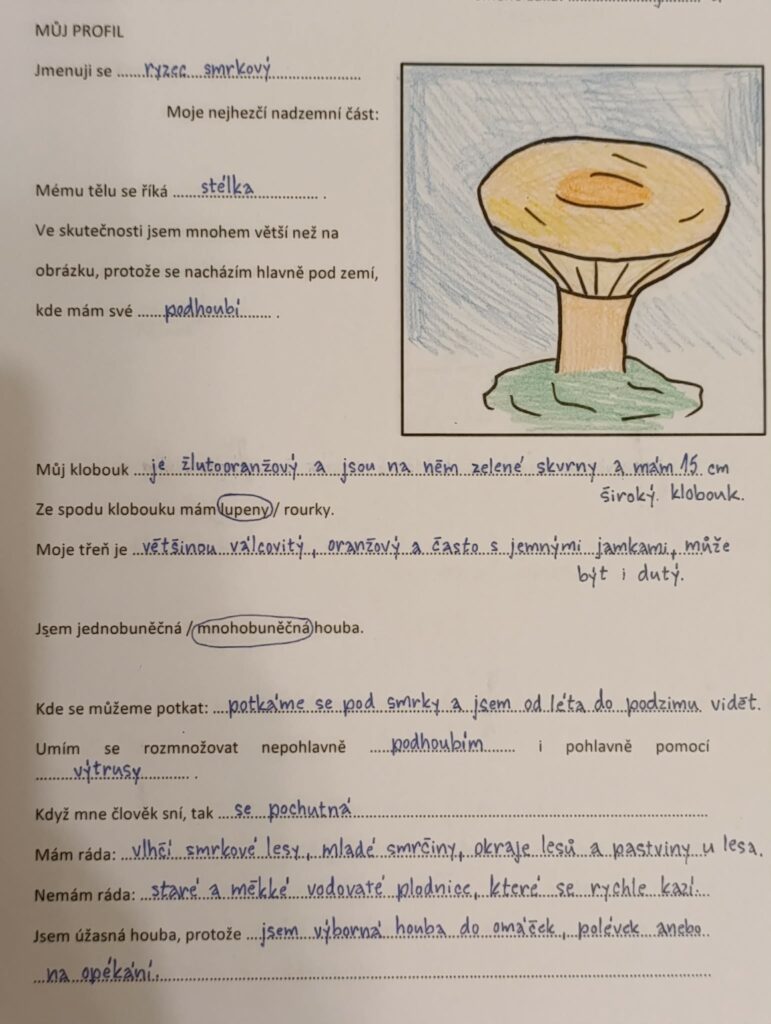 MŮJ PROFIL
Jmenuji se ......ryzec smrkový......................
Moje nejhezčí nadzemní část:
Mému tělu se říká ......stélka................ .
Ve skutečnosti jsem mnohem větší než na
obrázku, protože se nacházím hlavně pod zemí,
kde mám své ......podhoubí....... .
Můj klobouk ...je žlutooranžový a jsou na něm zelené skvrny a mám 15 cm
široký klobouk.
Ze spodu klobouku mám lupeny / rourky.
Moje třeň je ..většinou válcovitý, oranžový a často s jemnými jamkami, může
být i dutý.
Jsem jednobuněčná / mnohobuněčná houba.
Kde se můžeme potkat: ...potkáme se pod smrky a jsem od léta do podzimu vidět.
Umím se rozmnožovat nepohlavně ....podhoubím...... i pohlavně pomocí
........výtrusy............ .
Když mne člověk sní, tak ...se pochutná...........................................
Mám ráda: ..vlhčí smrkové lesy, mladé smrčiny, okraje lesů a pastviny u lesa.
Nemám ráda: ..staré a měkké vodovaté plodnice, které se rychle kazí...
Jsem úžasná houba, protože ...jsem výborná houba do omáček, polévek anebo
..na opékání......................................................